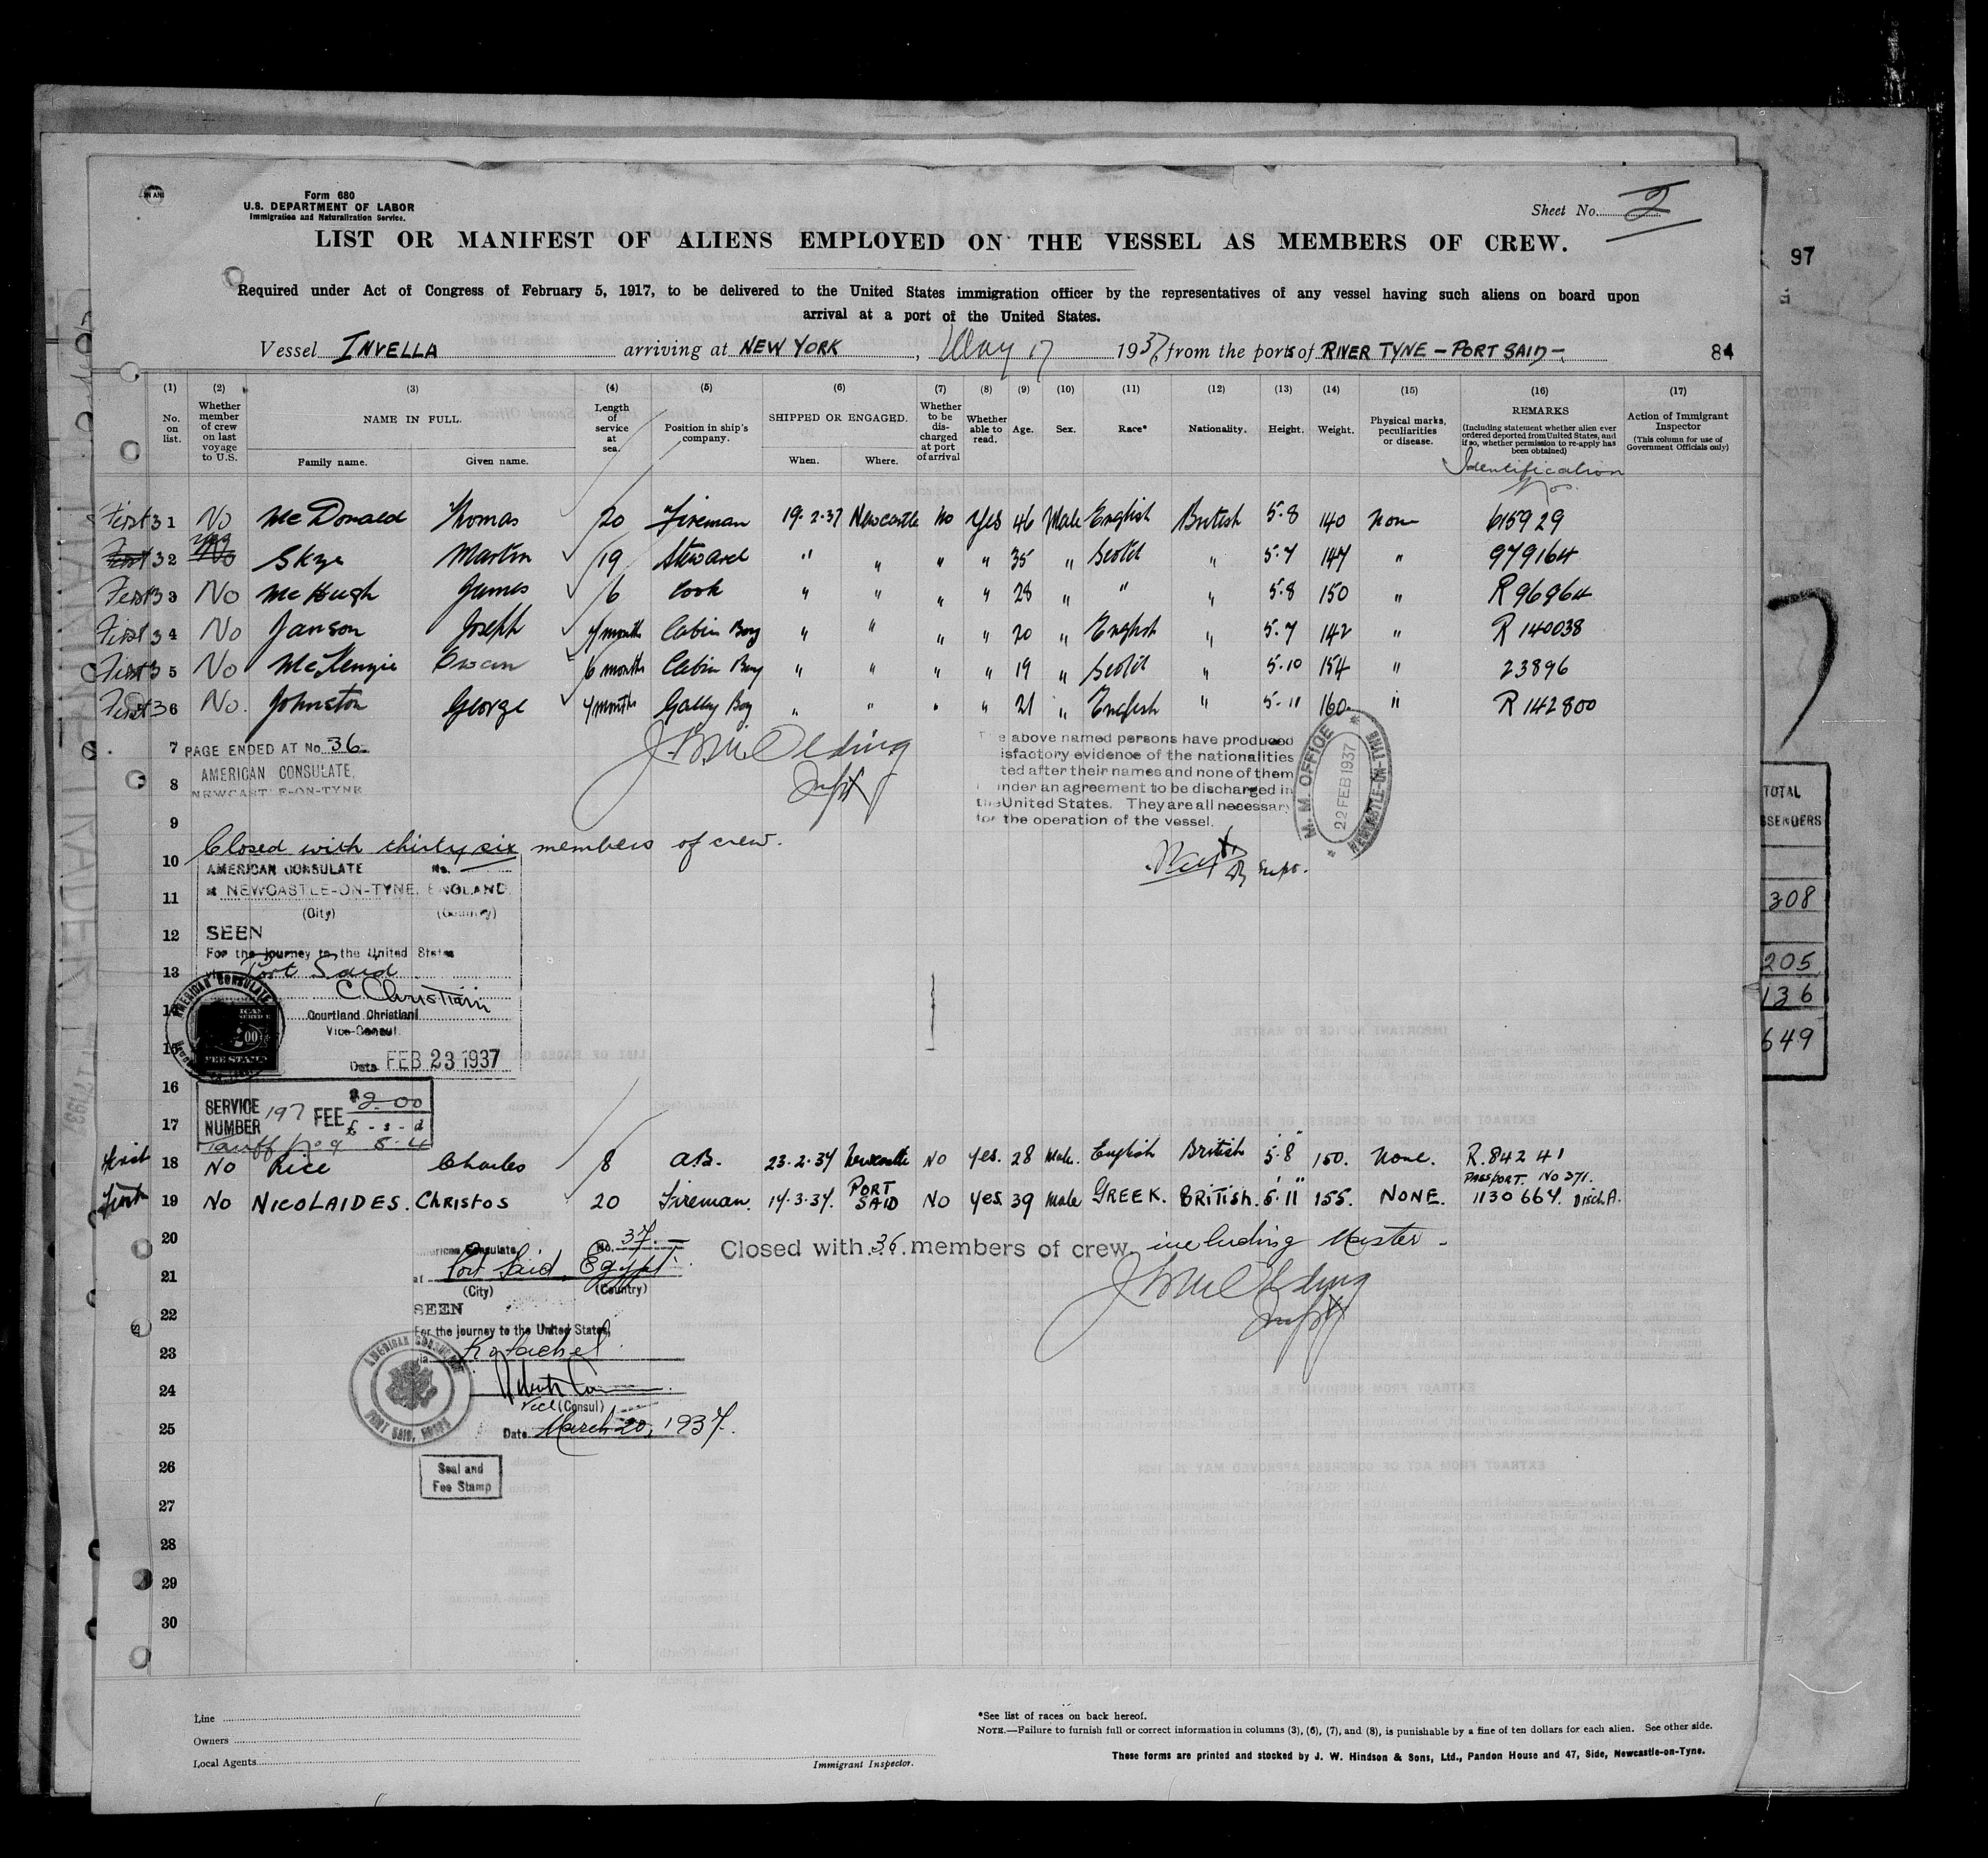 Form 680
U.S. DEPARTMENT OF LABOR
Immigration and Naturalization Service.
Sheet No. 2
LIST OR MANIFEST OF ALIENS EMPLOYED ON THE VESSEL AS MEMBERS OF CREW.
97
Required under Act of Congress of February 5, 1917, to be delivered to the United States immigration officer by the representatives of any vessel having such aliens on board upon
arrival at a port of the United States.
Vessel INVELLA arriving at NEW YORK, May 17 1937, from the ports of RIVER TYNE - PORT SAID - 84
(1) (2) (3) (4) (5) (6) (7) (8) (9) (10) (11) (12) (13) (14) (15) (16) (17)
No. on list. Whether member of crew on last voyage to U.S. NAME IN FULL. Family name. Given name. Length of service at sea. Position in ship's company. SHIPPED OR ENGAGED. When. Where. Whether to be discharged at port of arrival Whether able to read. Age. Sex. Race* Nationality. Height. Weight. Physical marks, peculiarities or disease. REMARKS (Including statement whether alien ever ordered deported from United States, and if so, whether permission to re-apply has been obtained) Action of Immigrant Inspector (This column for use of Government Officials only)
Identification Nos.
First 31 No McDonald Thomas 20 Fireman 19.2.37 Newcastle No Yes 46 Male English British 5.8 140 None 615929
First 32 No yes Skye Martin 19 Steward " " " " 35 " Scotch " 5.7 147 " 979164
First 33 No McHugh James 6 Cook " " " " 28 " " " 5.8 150 " R 96964
First 34 No Janson Joseph 4 months Cabin Boy " " " " 20 " English " 5.7 142 " R 140038
First 35 No McKenzie Owen 6 months Cabin Boy " " " " 19 " Scotch " 5.10 154 " 23896
First 36 No. Johnston George 4 months Galley Boy " " " " 21 " English " 5.11 160 " R 142800
7 PAGE ENDED AT No. 36
AMERICAN CONSULATE,
8 NEWCASTLE-ON-TYNE
e above named persons have produced
isfactory evidence of the nationalities
ted after their names and none of them
nder an agreement to be discharged in
the United States. They are all necessary
for the operation of the vessel.
M. M. OFFICE
22 FEB 1937
NEWCASTLE-ON-TYNE
9
10 Closed with thirty six members of crew.
AMERICAN CONSULATE No.
11 at NEWCASTLE-ON-TYNE, ENGLAND.
(City) (Country)
12 SEEN
For the journey to the United States
13 via Port Said
14 C. Christiani
Courtland Christiani
Vice-Consul.
15 Date FEB 23 1937
AMERICAN CONSULATE
FEE STAMP
16
SERVICE NUMBER 197 FEE $2.00
17 £ - s - d
Tariff No 9 8-4
First 18 No Rice Charles 8 A.B. 23.2.37 Newcastle No Yes. 28 Male. English British 5.8" 150. None. R.84241
First 19 No NICOLAIDES. CHRISTOS 20 Fireman. 17.3.37. PORT SAID No Yes. 39 Male GREEK. BRITISH. 5.11" 155. NONE. PASSPORT. No 371. 1130664. Disch.A.
20 American Consulate No. 37. Closed with 36 members of crew, including Master.
21 at Port Said, Egypt.
(City) (Country)
22 SEEN
For the journey to the United States,
23 via
24 Vice (Consul)
25 Date March 20, 1937.
AMERICAN CONSULATE
PORT SAID, EGYPT
26 Seal and
Fee Stamp
27
28
29
30
TOTAL
308
205
136
649
Line
Owners
Local Agents
Immigrant Inspector.
*See list of races on back hereof.
NOTE.—Failure to furnish full or correct information in columns (3), (6), (7), and (8), is punishable by a fine of ten dollars for each alien. See other side.
These forms are printed and stocked by J. W. Hindson & Sons, Ltd., Pandon House and 47, Side, Newcastle-on-Tyne.